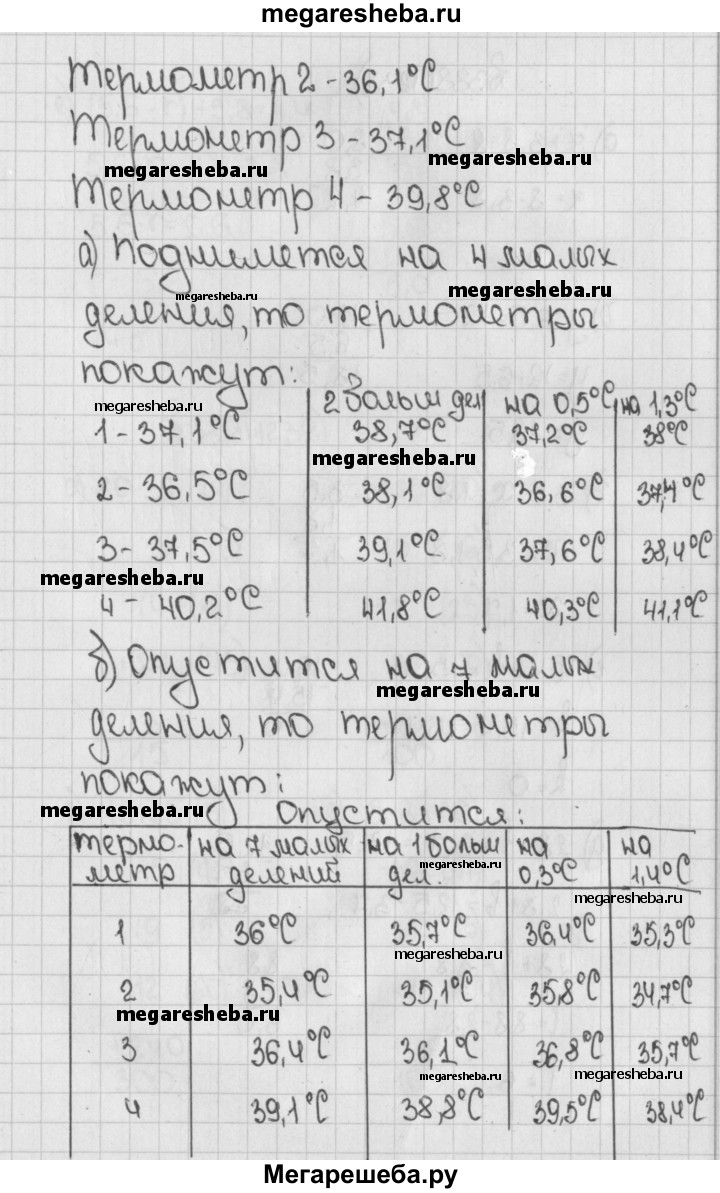 megaresheba.ru
Термометр 2 - 36,1°С
Термометр 3 - 37,1°С
megaresheba.ru
megaresheba.ru
Термометр 4 - 39,8°С
а) Поднимется на 4 малых
megaresheba.ru
megaresheba.ru
деления, то термометры
покажут:
megaresheba.ru
2 больш дел | на 0,5°С | на 1,3°С
1 - 37,1°С | 38,7°С | 37,2°С | 38°С
megaresheba.ru
2 - 36,5°С | 38,1°С | 36,6°С | 37,4°С
3 - 37,5°С | 39,1°С | 37,6°С | 38,4°С
megaresheba.ru
4 - 40,2°С | 41,8°С | 40,3°С | 41,1°С
б) Опустится на 7 малых
megaresheba.ru
деления, то термометры
покажут:
megaresheba.ru
Опустится:
термо- | на 7 малых | на 1 больш | на | на
megaresheba.ru
метр | делений | дел. | 0,3°С | 1,4°С
megaresheba.ru
1 | 36°С | 35,7°С | 36,4°С | 35,3°С
megaresheba.ru
2 | 35,4°С | 35,1°С | 35,8°С | 34,7°С
megaresheba.ru
3 | 36,4°С | 36,1°С | 36,8°С | 35,7°С
megaresheba.ru
megaresheba.ru
4 | 39,1°С | 38,8°С | 39,5°С | 38,4°С
Мегарешеба.ру